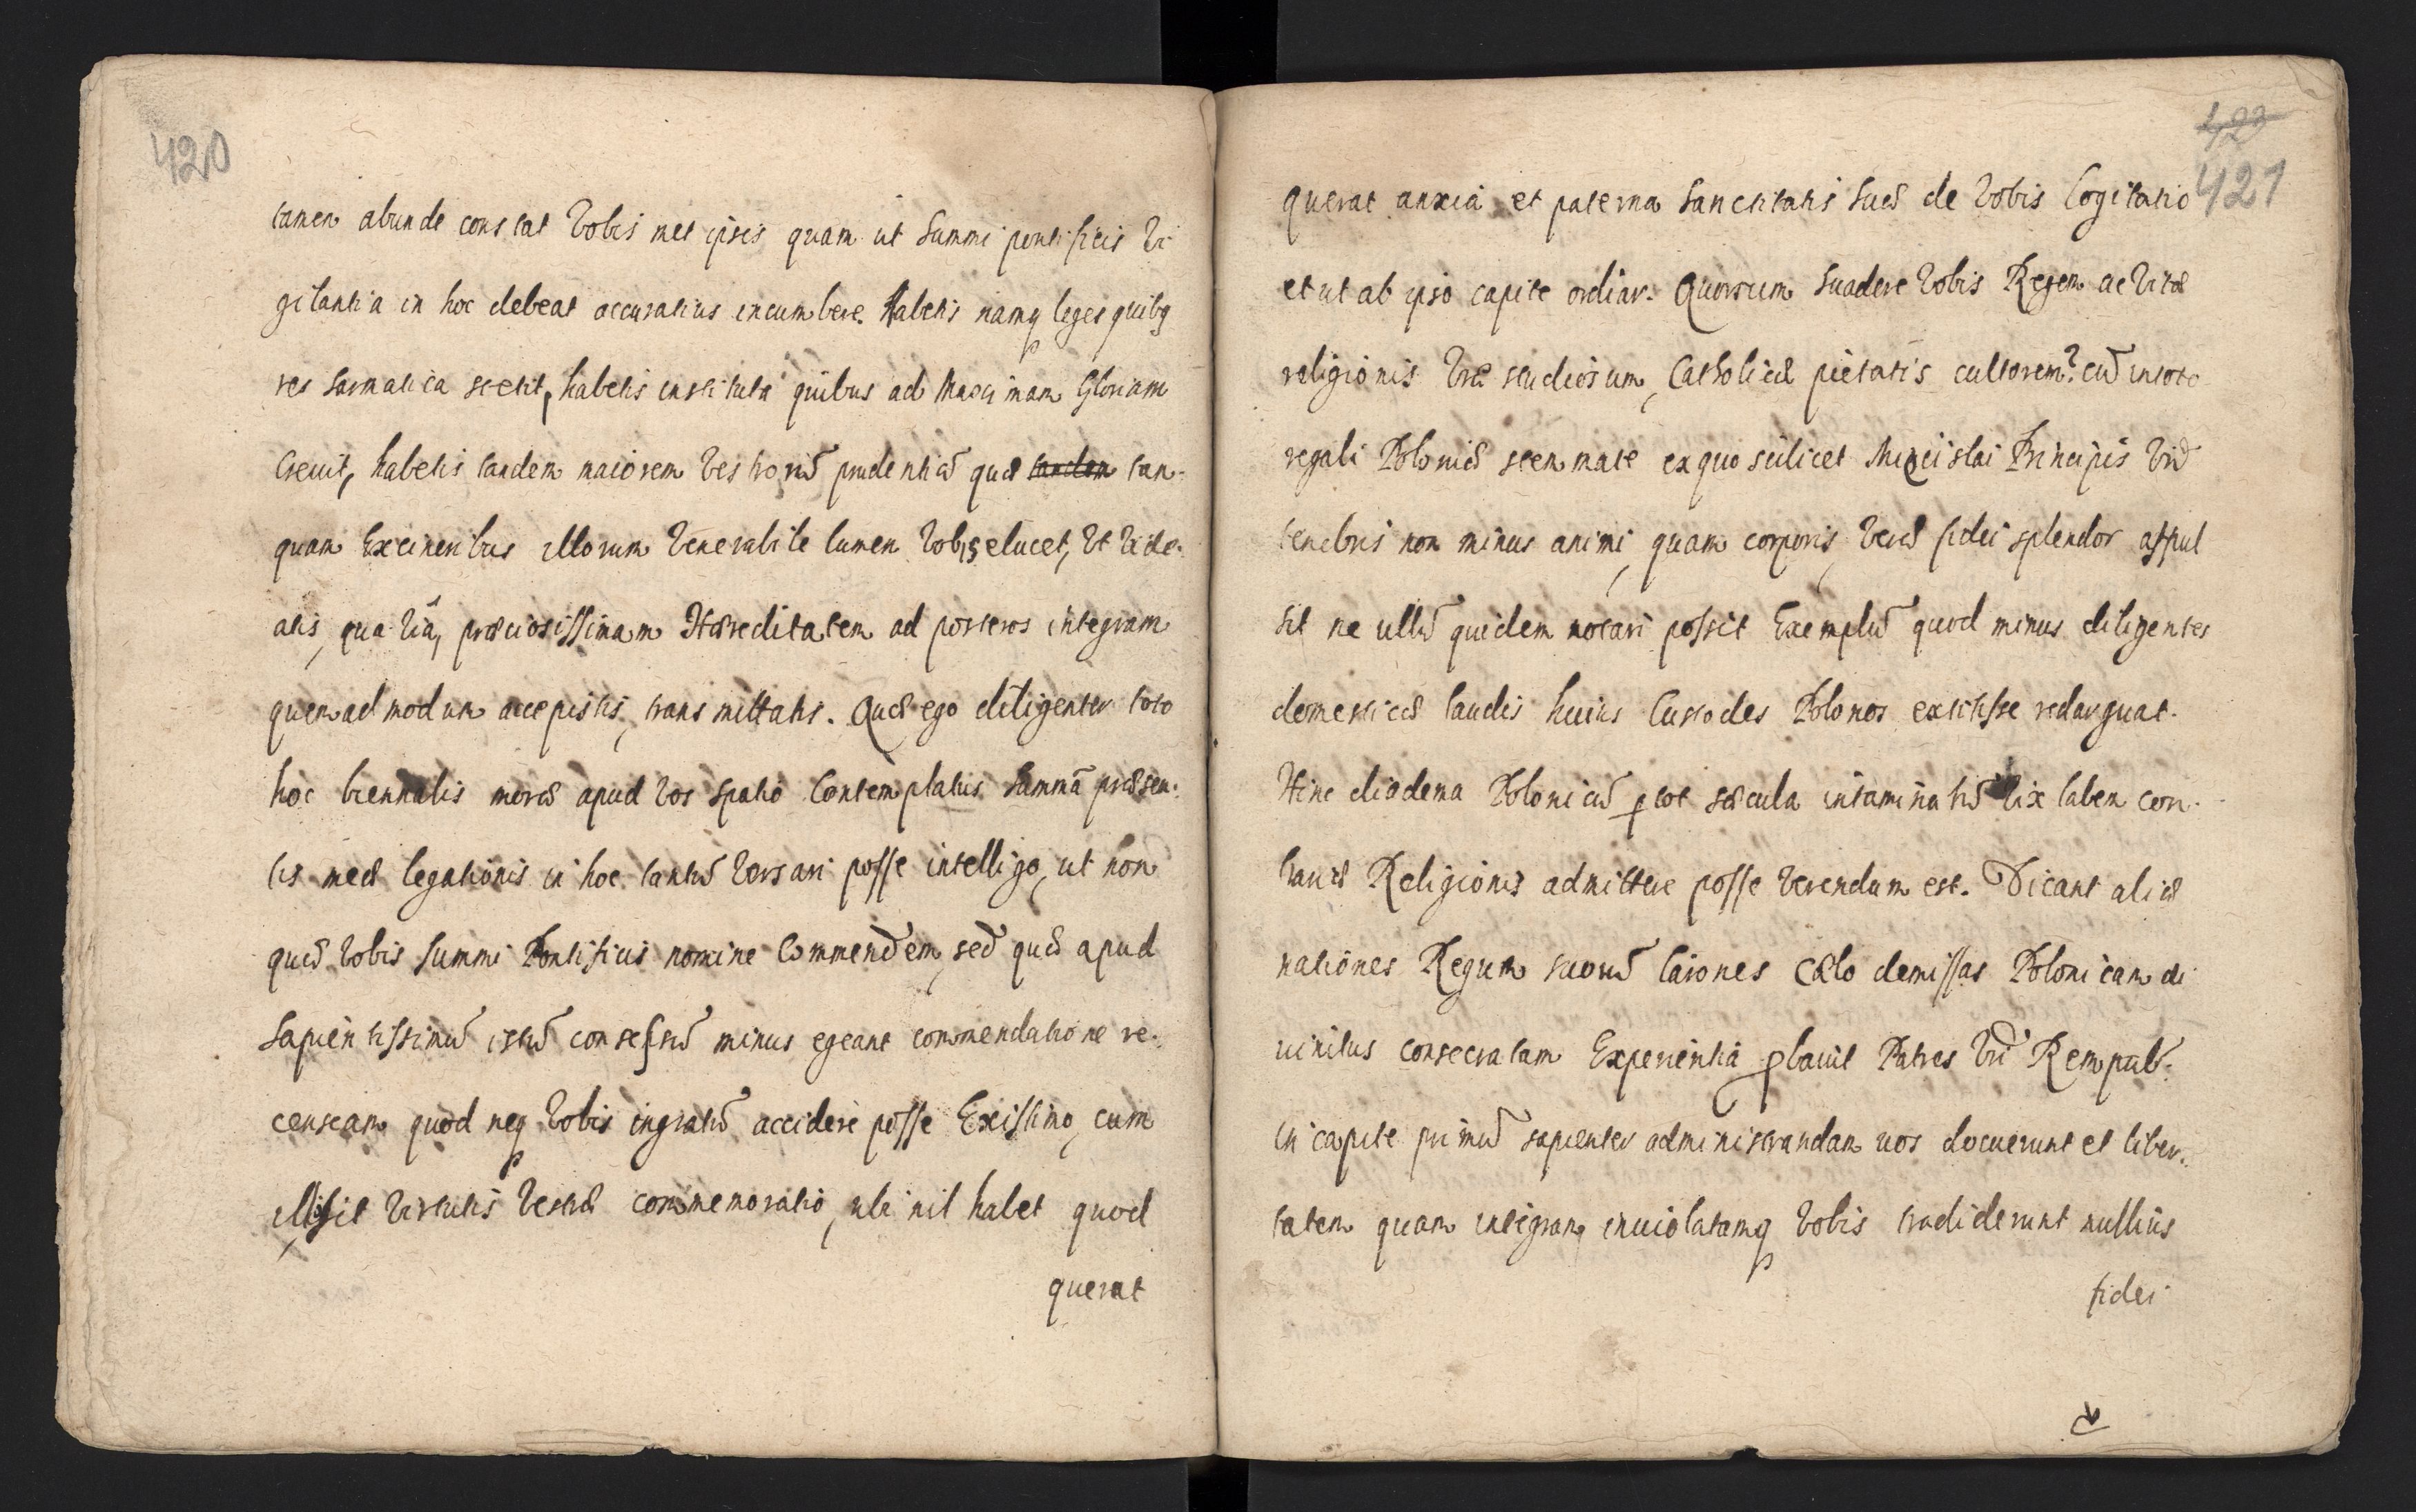 420
tamen abunde constat Vobis met ipsis quam ut Summi pontificis Vi
gilantia in hoc debeat accuratius incumbere. Habetis namq leges quibq
res sarmatica stetit, habetis instituta quibus ad Maximam Gloriam
Crevit, habetis tandem maiorem Vestrorũ prudentiã quæ tandem tan-
quam Ex cineribus illorum Venerabile lumen Vobis elucet, Ut Vide-
atis, qua Viâ, præciosissimam Hæreditatem ad posteros integram
quemadmodum accepistis, transmittatis. Quæ ego diligenter toto
hoc biennalis moræ apud Vos spatio Contemplatus Summã præsen-
tis meæ legationis in hoc tantũ Versari posse intelligo, ut non
quæ Vobis Summi Pontificis nomine Commendem, sed quæ apud
Sapientissimũ istũ consessũ minus egeant commendatione re-
censeam quod neq Vobis ingratũ accidere posse Existimo, cum
illis sit Virtutis Vestræ commemoratio, ubi nil habet quod
querat
423
421
querat anxia et paterna Sanctitatis Suæ de Vobis Cogitatio
et ut ab ipso capite ordiar. Quorsum Suadere Vobis Regem ac Vitæ
religionis Vræ studiosum, Catholicæ pietatis cultorem? cũ in toto
regali Poloniæ stemmate ex quo scilicet Miecislai Principis Vrĩ
tenebris non minus animi, quam corporis, Veræ fidei splendor afful
sit ne ullũ quidem notari possit Exemplũ quod minus diligentes
domesticæ laudis huius Custodes Polonos extitisse redarguat.
Hinc diadema Polonicũ p tot sæcula intaminatũ Vix labem con-
trariæ Religionis admittere posse Verendum est. Dicant aliæ
nationes Regum suorũ Coronas Cælo demissas Polonicam di
vinitus consecratam Experientia pbavit Patres Vrĩ Rempub:
in capite primũ sapienter administrandam vos docuerunt et liber-
tatem quam integram inviolatamq Vobis tradiderunt nullius
fidei